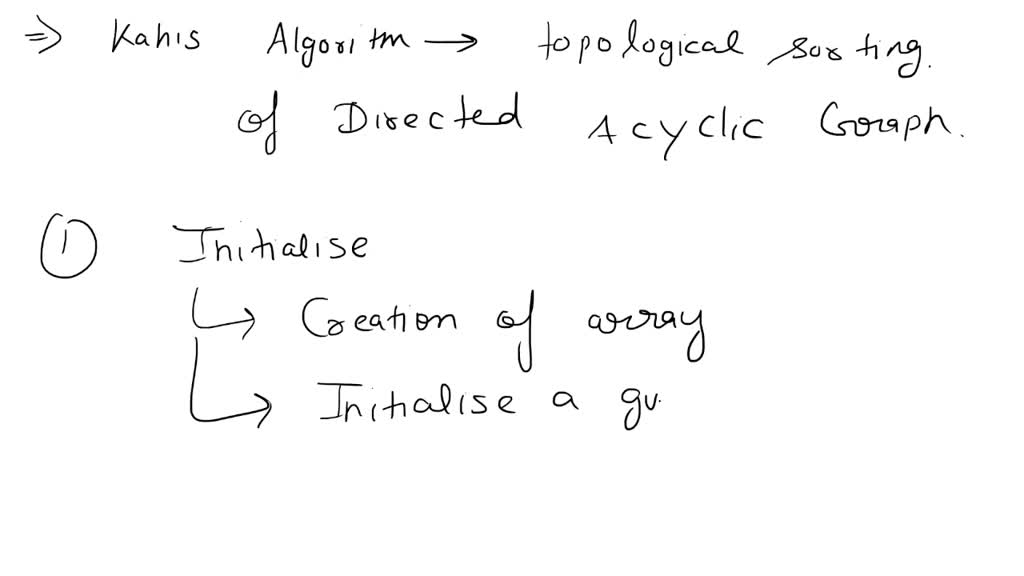 ⇒ Kahis Algorithm → topological sorting.
of Directed Acyclic Graph.
① Initialise
↳ Creation of array
↳ Initialise a qu